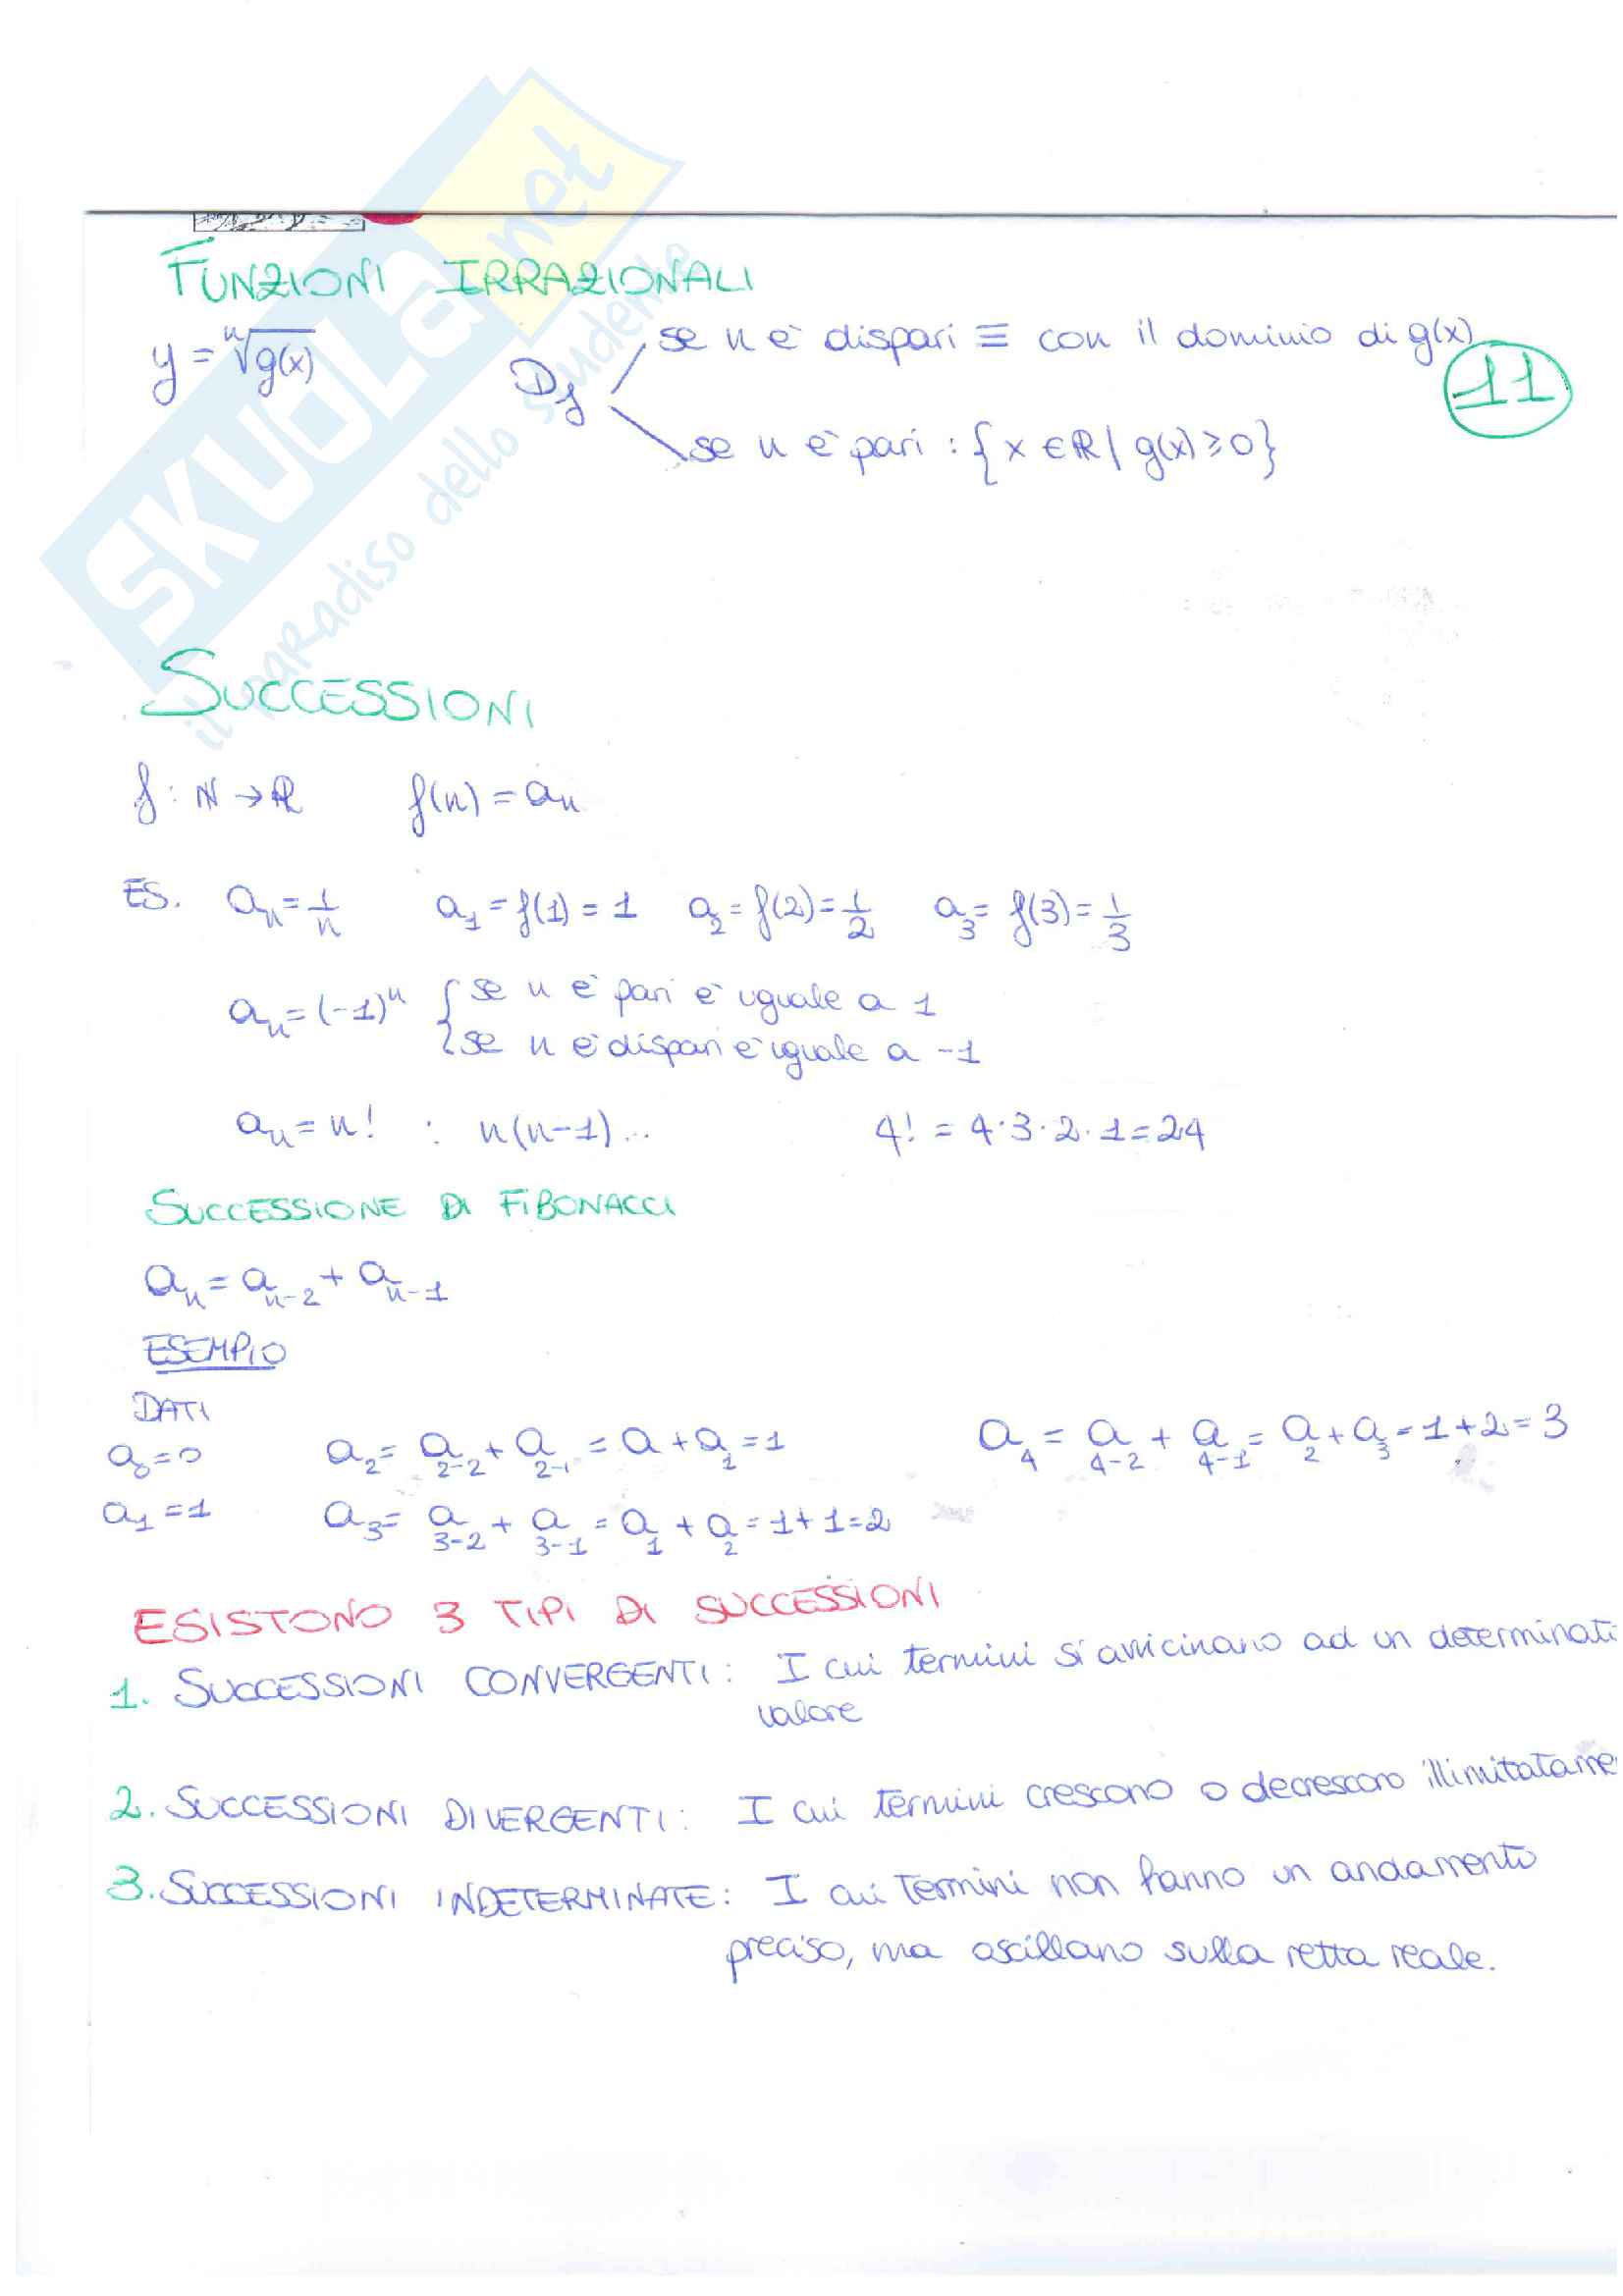 FUNZIONI IRRAZIONALI
y = ⁿ√g(x)
D_f
se n è dispari ≡ con il dominio di g(x)
11
se n è pari : {x ∈ ℝ | g(x) ≥ 0}
SKUOLA.net
il paradiso dello studente
SUCCESSIONI
f : ℕ → ℝ f(n) = a_n
ES. a_n = 1/n a_1 = f(1) = 1 a_2 = f(2) = 1/2 a_3 = f(3) = 1/3
a_n = (-1)^n { se n è pari è uguale a 1
se n è dispari è uguale a -1
a_n = n! : n(n-1)... 4! = 4·3·2·1 = 24
SUCCESSIONE DI FIBONACCI
a_n = a_{n-2} + a_{n-1}
ESEMPIO
DATI
a_0 = 0 a_2 = a_{2-2} + a_{2-1} = a + a_1 = 1 a_4 = a_{4-2} + a_{4-1} = a_2 + a_3 = 1+2 = 3
a_1 = 1 a_3 = a_{3-2} + a_{3-1} = a_1 + a_2 = 1+1 = 2
ESISTONO 3 TIPI DI SUCCESSIONI
1. SUCCESSIONI CONVERGENTI: I cui termini si avvicinano ad un determinat
valore
2. SUCCESSIONI DIVERGENTI: I cui termini crescono o decrescono illimitatame
3. SUCCESSIONI INDETERMINATE: I cui termini non hanno un andamento
preciso, ma oscillano sulla retta reale.